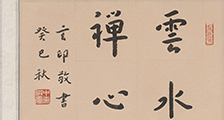 雲水
禪心
玄印敬書
癸巳秋